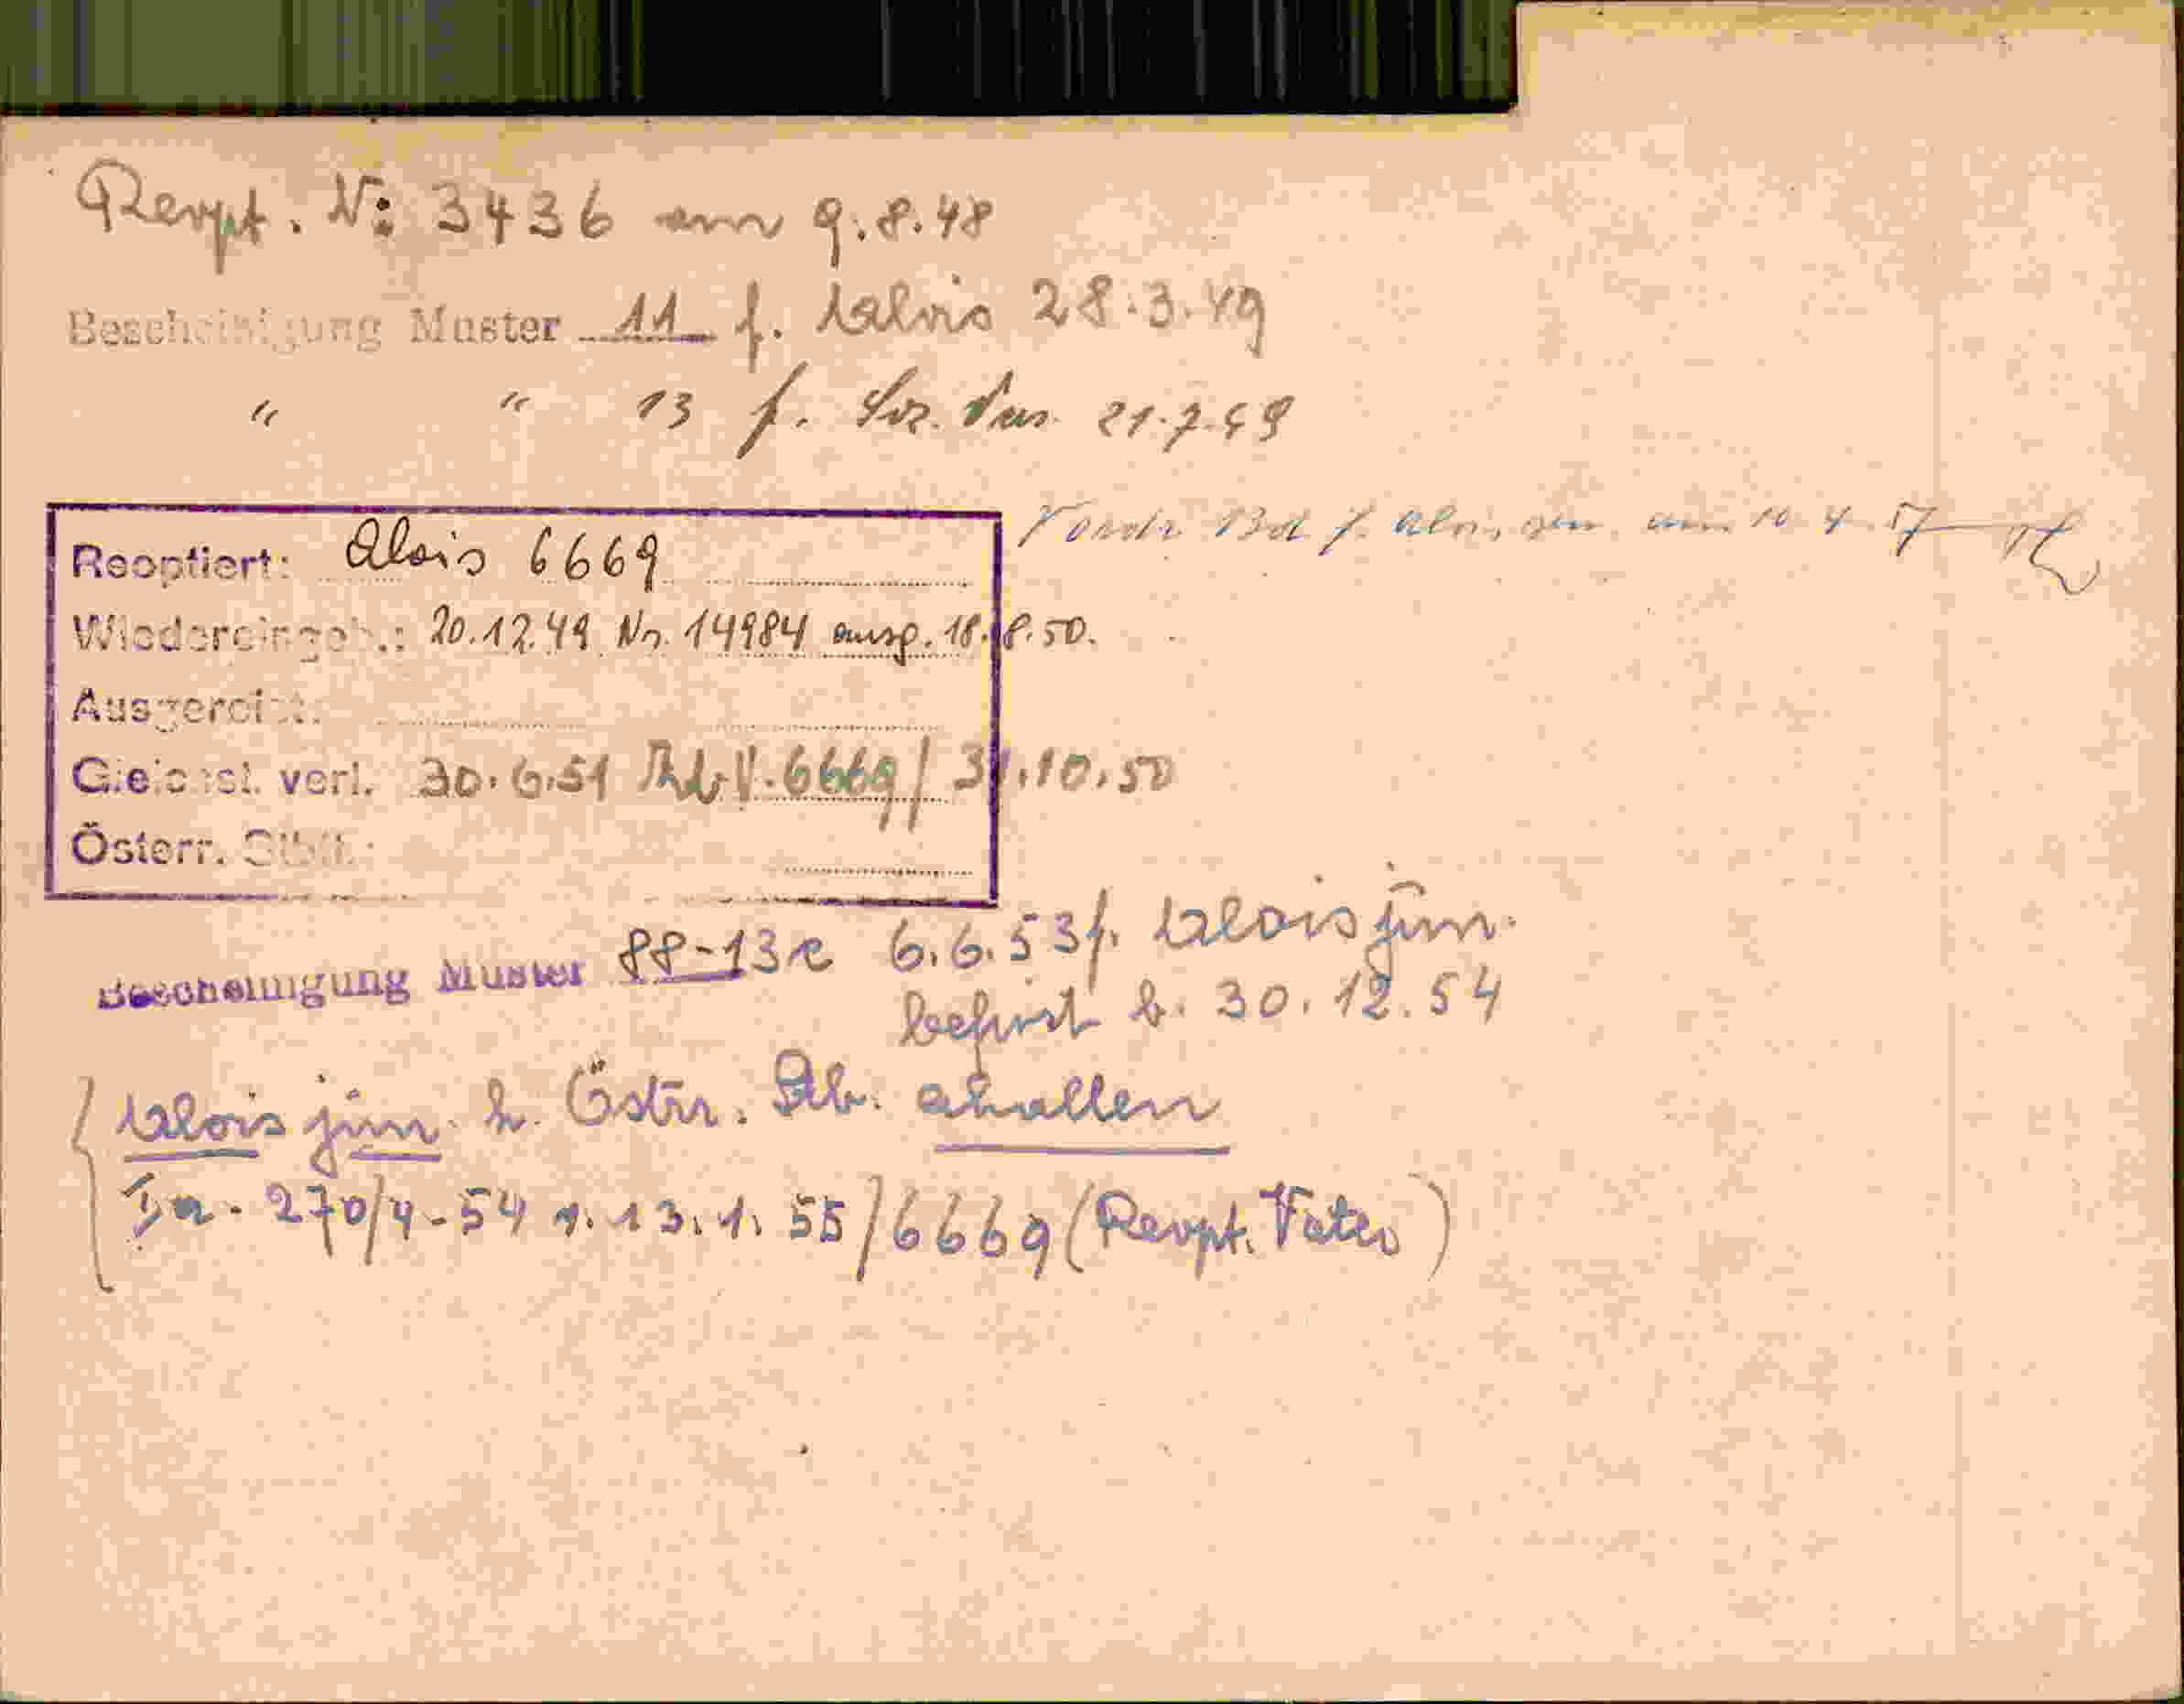 Reopt. No 3436 am 9.8.48
Bescheinigung Muster 11 f. Alois 28.3.49
" " 13 f. 21.7.49
f. Alois sen. am 10.4.57
Reoptiert: Alois 6669
Wiedereingeb.: 20.12.49 Nr. 14984 ausg. 18.8.50.
Ausgereist:
Gleichst. verl. 30.6.51 6669/31.10.50
Österr. Stbü.:
Bescheinigung Muster 88-13e 6.6.53 f. Alois jun.
befrist b. 30.12.54
Alois jun. h. Östr. Stb. erhalten
Ia-270/4-54 v. 13.1.55/6669 (Reopt. Vater)